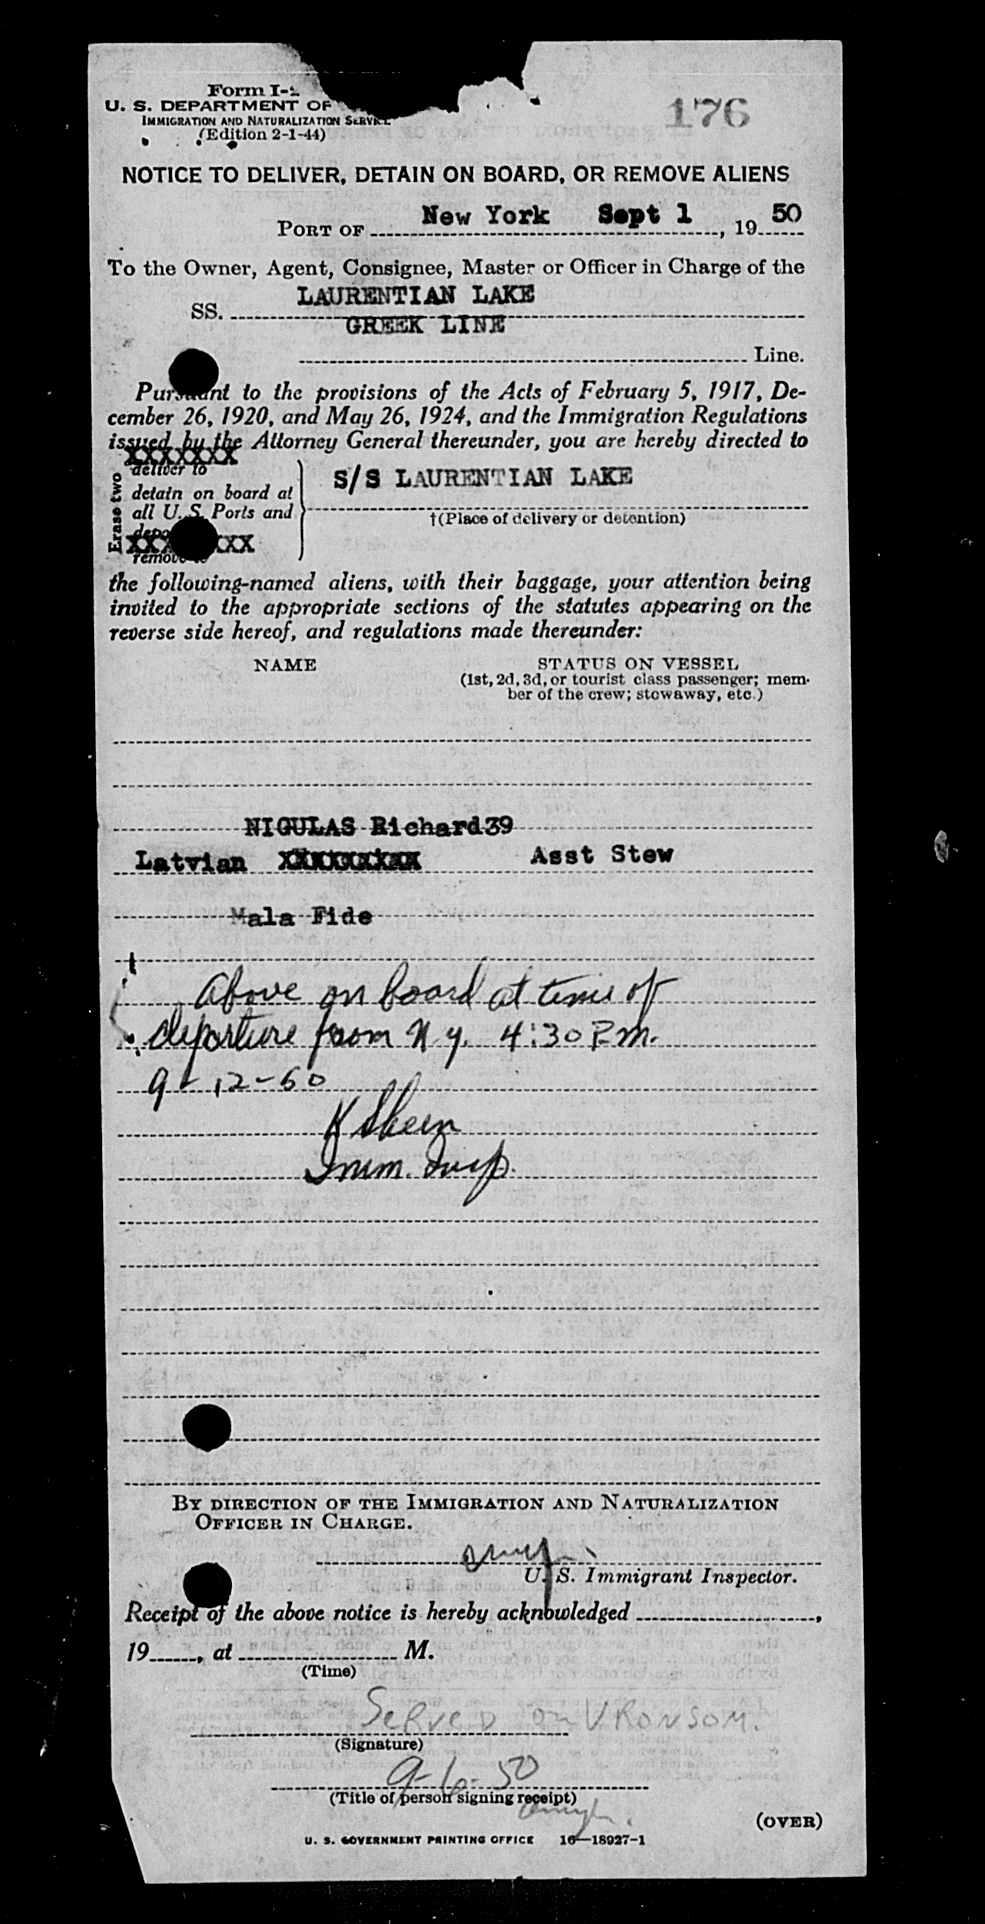 Form I-
176
U. S. DEPARTMENT OF
IMMIGRATION AND NATURALIZATION SERVICE
(Edition 2-1-44)
NOTICE TO DELIVER, DETAIN ON BOARD, OR REMOVE ALIENS
PORT OF New York Sept 1, 19 50
To the Owner, Agent, Consignee, Master or Officer in Charge of the
SS. LAURENTIAN LAKE
GREEK LINE
Line.
Pursuant to the provisions of the Acts of February 5, 1917, De-
cember 26, 1920, and May 26, 1924, and the Immigration Regulations
issued by the Attorney General thereunder, you are hereby directed to
XXXXXXX
deliver to
S/S LAURENTIAN LAKE
Erase two
detain on board at
all U. S. Ports and
†(Place of delivery or detention)
remove to
the following-named aliens, with their baggage, your attention being
invited to the appropriate sections of the statutes appearing on the
reverse side hereof, and regulations made thereunder:
NAME STATUS ON VESSEL
(1st, 2d, 3d, or tourist class passenger; mem-
ber of the crew; stowaway, etc.)
NIGULAS Richard 39
Latvian XXXXXXXXX Asst Stew
Mala Fide
Above on board at time of
departure from N.Y. 4:30 P.M.
9-12-50
K Sheen
Imm. Insp.
BY DIRECTION OF THE IMMIGRATION AND NATURALIZATION
OFFICER IN CHARGE.
U. S. Immigrant Inspector.
Receipt of the above notice is hereby acknowledged ,
19 , at M.
(Time)
Served on V RONSOM.
(Signature)
9-6-50
(Title of person signing receipt)
(OVER)
U. S. GOVERNMENT PRINTING OFFICE 16—18927-1